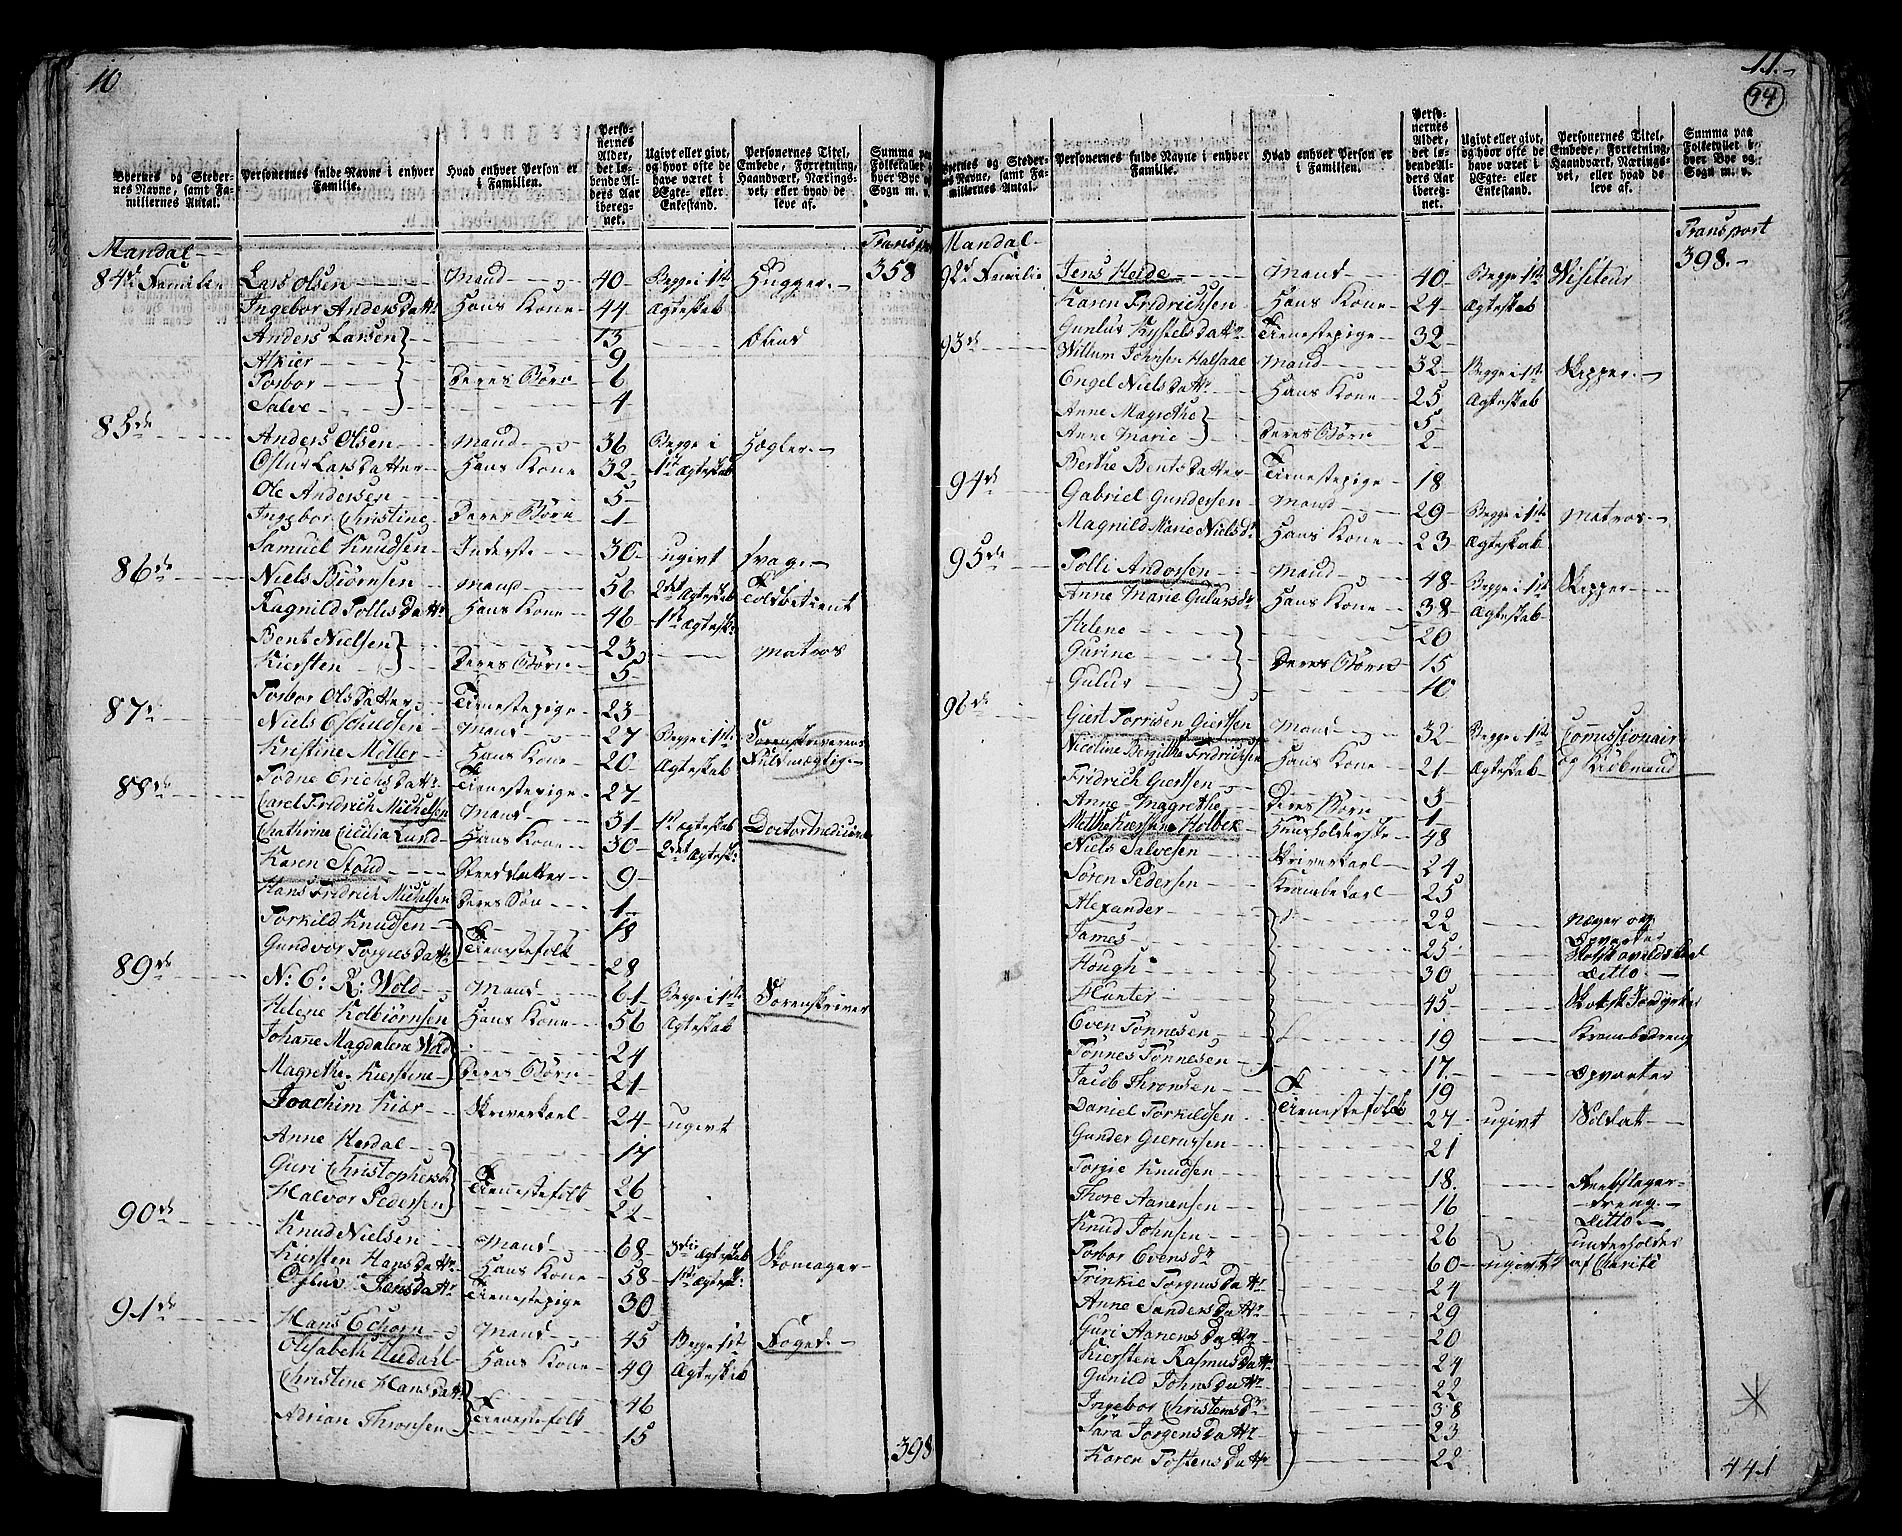 10
Byernes og Steder-
nes Navne, samt Fa-
millernes Antal.
Personernes fulde Navne i enhver
Familie.
Hvad enhver Person er
i Familien.
Perso-
nernes
Alder,
det lø-
bende Al-
ders Aar
iberег-
net.
Ugivt eller givt,
og hvor ofte de
have været i
Ægte- eller
Enkestand.
Personernes Titel,
Embede, Forretning,
Haandværk, Nærings-
vei, eller hvad de
leve af.
Summa paa
Folketallet i
hver Bye og
Sogn m. v.
Mandal Transport
84de Familie Lars Olsen Mand 40 Begge i 1ste Hugger 358
Ingebor Andersdattr Hans Kone 44 Ægteskab
Anders Larsen 13 blind
Askier 9
Torbor Deres Børn 6
Salve 4
85de Anders Olsen Mand 36 Begge i Hegler
Ostur Larsdatter Hans Kone 32 1ste Ægteskab
Ole Andersen 5
Ingebor Christine Deres Børn 1
Samuel Knudsen Inderste 30 ugivt svag
86de Niels Biørnsen Mand 56 2det Ægteskab Toldbetient
Ragnild Tollisdattr Hans Kone 46 1te Ægtesk:
Bent Nielsen 23 Matros
Kiersten Deres Børn 5
Torbor Olsdatter Tienestepige 23
87de Niels Eschildsen Mand 27 Begge i 1ste Sorenskriverens
Kristine Møller Hans Kone 20 Ægteskab Fuldmægtig
Todne Erichsdattr Tienestepige 27
88de Carel Fridrich Michelsen Mand 31 1te Ægteskab Doctor Medicine
Chathrine Cicilia Lund Hans Kone 30 2det Ægtesk:
Karen Stoud Steddatter 9
Hans Fridrich Michelsen Deres Søn 1
Torkild Knudsen 18
Gundvor Torgusdattr Tienestefolk 28
89de N: C: K: Wold Mand 61 Begge i 1ste Sorenskriver
Helene Kolbiørnsen Hans Kone 56 Ægteskab
Johanne Magdalena Wold 24
Magrethe Kierstine Deres Børn 21
Joachim Kiær Skriverkarl 24 ugivt
Anne Herdal 17
Guri Christophersdr Tienestefolk 26
Halvor Pedersen 22
90de Knud Nielsen Mand 68 3die Ægteskab Skomager
Kiersten Hansdattr Hans Kone 58 1te Ægtesk:
Ostur Jensdattr Tienestepige 30
91de Hans Echorn Mand 45 Begge 1ste Foged
Elisabeth Hiedahl Hans Kone 49 Ægteskab
Christine Hansdattr 46
Adrian Thronsen Tienestefolk 15
398
11.
94
Byernes og Steder-
nes Navne, samt Fa-
millernes Antal.
Personernes fulde Navne i enhver
Familie.
Hvad enhver Person er
i Familien.
Perso-
nernes
Alder,
det lø-
bende Al-
ders Aar
ibereg-
net.
Ugivt eller givt,
og hvor ofte de
have været i
Ægte- eller
Enkestand.
Personernes Titel,
Embede, Forretning,
Haandværk, Nærings-
vei, eller hvad de
leve af.
Summa paa
Folketallet i
hver Bye og
Sogn m. v.
Mandal Transport
92de Familie Jens Heide Mand 40 Begge i 1ste Visiteur 398.
Karen Fridrichsen Hans Kone 24 Ægteskab
Gunlur Kystelsdattr Tienestepige 32
93de Willum Johnsen Halsaae Mand 32 Begge i 1ste Skipper
Engel Nielsdattr Hans Kone 25 Ægteskab
Anne Magrethe 5
Anne Marie Deres Børn 2
Berthe Bentsdatter Tienestepige 18
94de Gabriel Gundersen Mand 29 Begge i 1ste Matros
Magnild Marie Nielsdr Hans Kone 23 Ægteskab
95de Tolli Andorsen Mand 48 Begge i 1ste Skipper
Anne Marie Gulaksdr Hans Kone 38 Ægteskab
Helene 20
Gurine Deres Børn 15
Gulur 10
96de Giert Torrisen Giertsen Mand 32 Begge i 1ste Comissionair
Nicoline Bergitha Fridrichsen Hans Kone 21 Ægteskab og Kiøbmand
Fridrich Giertsen 3
Anne Magrethe Deres Børn 1
Mette Kierstine Holbek Huusholderske 48
Niels Salvesen Skriverkarl 24
Søren Pedersen Krambekarl 25
Alexander 22 Neger og
Opvarter
James 25 Skotsk Avlskarl
Hough 30 Ditto
Hunter 45 Skotsk Jorddyrker
Even Tønnesen 19 Krambodreng
Tønnes Tønnesen 17. Opvarter
Jacob Thronsen 19
Daniel Torkildsen Tienestefolk 27 ugivt Soldat
Gunder Gierugsen 21
Torgie Knudsen 18. Reebslager-
Thore Aanensen 16 dreng
Knud Johnsen 26 Ditto
Torbor Evensdr 60 ugivt underholdes
af Charité
Trinkie Torgusdattr 24
Anne Sandersdattr 29
Guri Aanensdattr 20
Kiersten Rasmusdattr 24
Gunild Johnsdattr 22
Ingebor Christensdr 38
Sara Jorgensdattr 23
Karen Tostensdattr 22
441